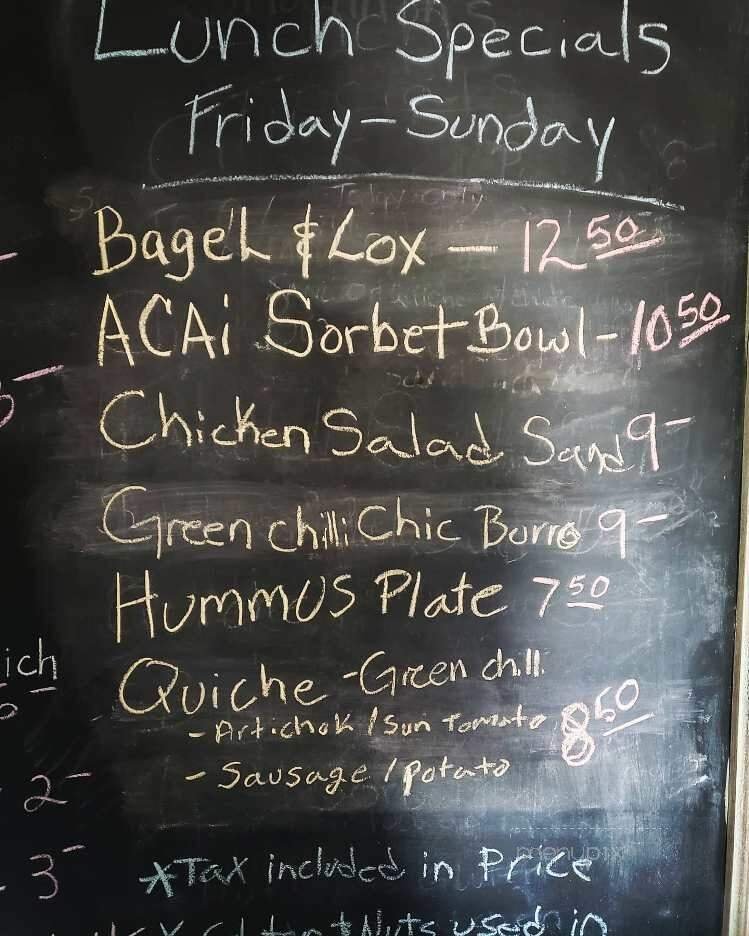 Lunch Specials
Friday - Sunday
Bagel & Lox - 12 50
ACAi Sorbet Bowl - 10 50
Chicken Salad Sand 9-
Green chilli Chic Burro 9-
Hummus Plate 7 50
Quiche - Green chili
- Artichok / Sun Tomato 8 50
- Sausage / potato
ich
2-
3-
*Tax included in Price
menupix
& Nuts used in